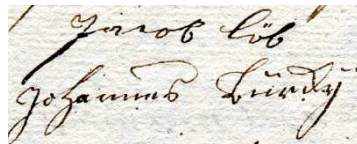 Jacob Löb
Johannes Bürcky